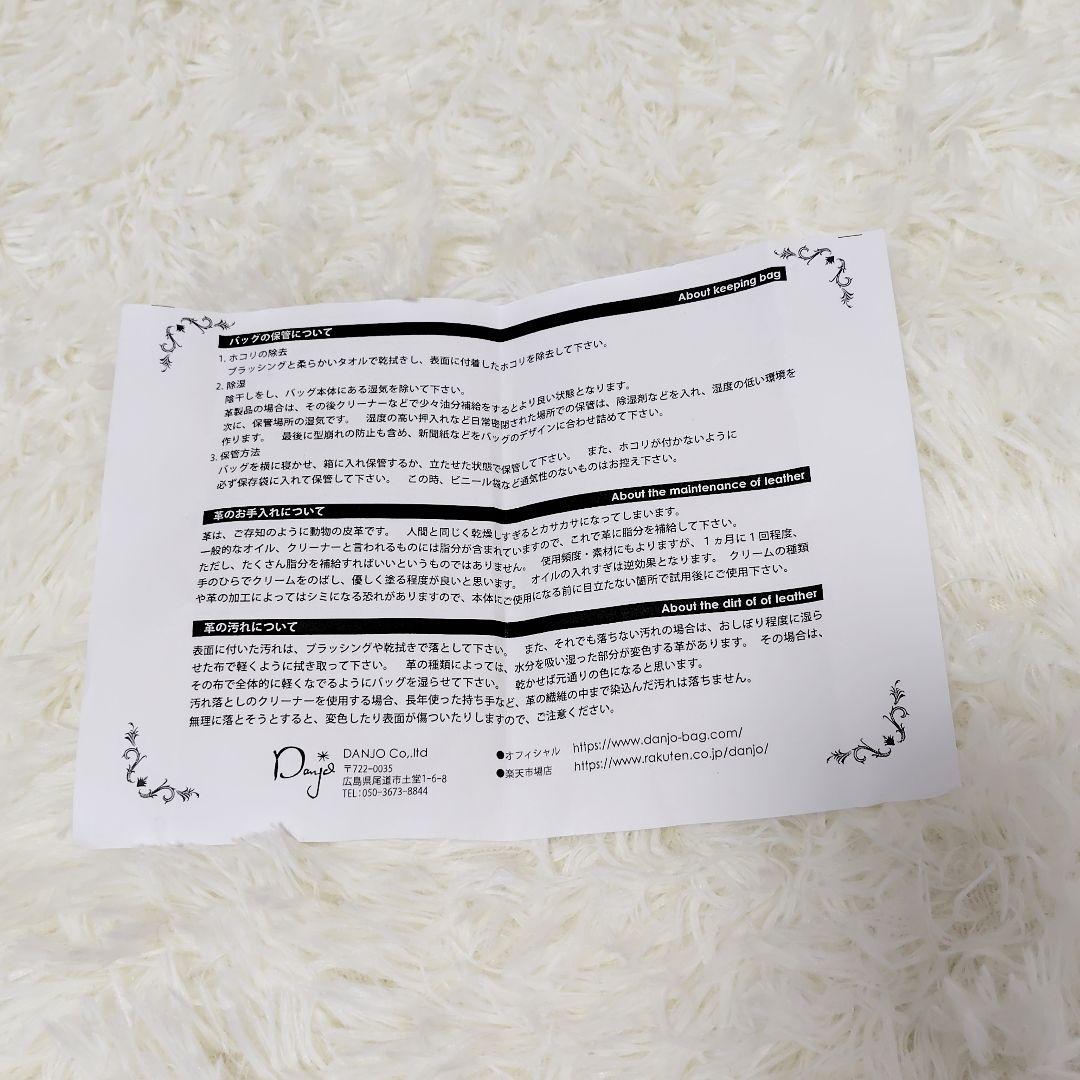 バッグの保管について About keeping bag
1. ホコリの除去
ブラッシングと柔らかいタオルで乾拭きし、表面に付着したホコリを除去して下さい。
2. 除湿
陰干しをし、バッグ本体にある湿気を除いて下さい。
革製品の場合は、その後クリーナーなどで少々油分補給をするとより良い状態となります。
次に、保管場所の湿気です。 湿度の高い押入れなど日常密閉された場所での保管は、除湿剤などを入れ、湿度の低い環境を
作ります。 最後に型崩れの防止も含め、新聞紙などをバッグのデザインに合わせ詰めて下さい。
3. 保管方法
バッグを横に寝かせ、箱に入れ保管するか、立たせた状態で保管して下さい。 また、ホコリが付かないように
必ず保存袋に入れて保管して下さい。 この時、ビニール袋など通気性のないものはお控え下さい。
革のお手入れについて About the maintenance of leather
革は、ご存知のように動物の皮革です。 人間と同じく乾燥しすぎるとカサカサになってしまいます。
一般的なオイル、クリーナーと言われるものには脂分が含まれていますので、これで革に脂分を補給して下さい。
ただし、たくさん脂分を補給すればいいというものではありません。 使用頻度・素材にもよりますが、1ヵ月に1回程度、
手のひらでクリームをのばし、優しく塗る程度が良いと思います。 オイルの入れすぎは逆効果となります。 クリームの種類
や革の加工によってはシミになる恐れがありますので、本体にご使用になる前に目立たない箇所で試用後にご使用下さい。
革の汚れについて About the dirt of of leather
表面に付いた汚れは、ブラッシングや乾拭きで落として下さい。 また、それでも落ちない汚れの場合は、おしぼり程度に湿ら
せた布で軽くように拭き取って下さい。 革の種類によっては、水分を吸い湿った部分が変色する革があります。 その場合は、
その布で全体的に軽くなでるようにバッグを湿らせて下さい。 乾かせば元通りの色になると思います。
汚れ落としのクリーナーを使用する場合、長年使った持ち手など、革の繊維の中まで染込んだ汚れは落ちません。
無理に落とそうとすると、変色したり表面が傷ついたりしますので、ご注意ください。
Danjo
DANJO Co,.ltd
〒722-0035
広島県尾道市土堂1-6-8
TEL:050-3673-8844
●オフィシャル https://www.danjo-bag.com/
●楽天市場店 https://www.rakuten.co.jp/danjo/